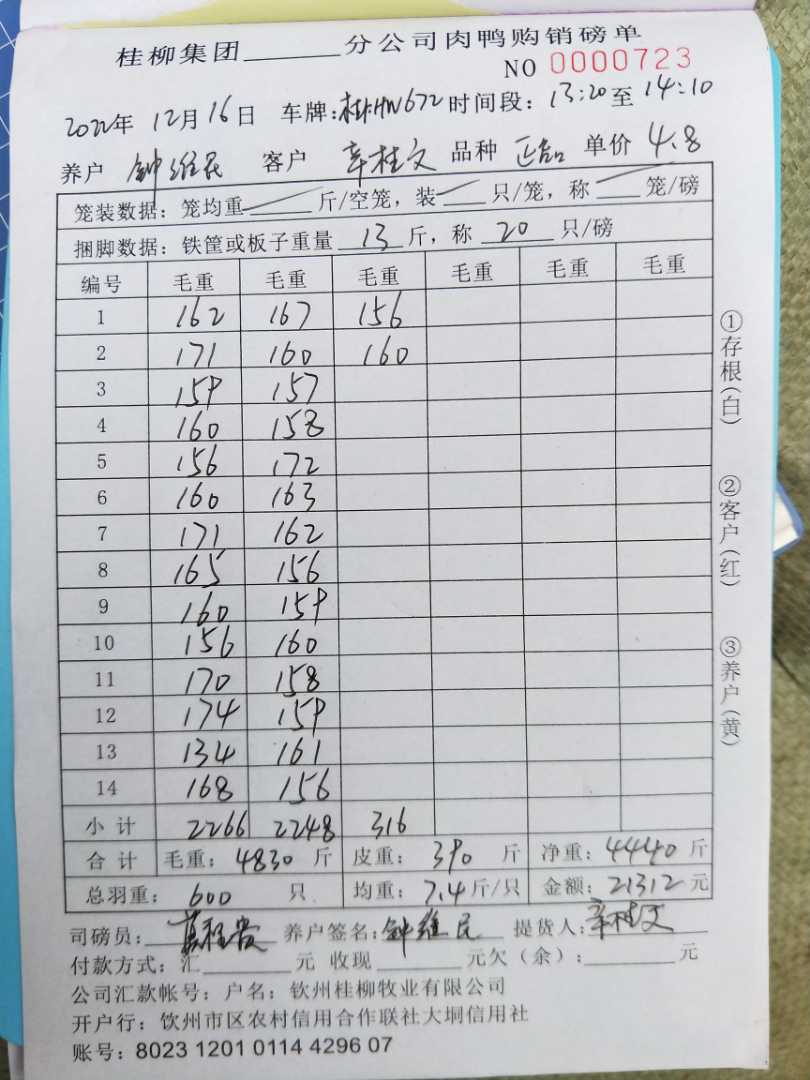 桂柳集团______分公司肉鸭购销磅单
NO 0000723
2022年 12月16日 车牌:桂HW672 时间段: 13:20 至 14:10
养户 钟维民 客户 辛桂文 品种 正品 单价 4.8
笼装数据: 笼均重______斤/空笼, 装____只/笼, 称____笼/磅
捆脚数据: 铁筐或板子重量 13 斤, 称 20 只/磅
编号 毛重 毛重 毛重 毛重 毛重 毛重
1 162 167 156
2 171 160 160
3 159 157
4 160 158
5 156 172
6 160 163
7 171 162
8 165 156
9 160 159
10 156 160
11 170 158
12 174 159
13 134 161
14 168 156
小计 2266 2248 316
合计 毛重: 4830 斤 皮重: 390 斤 净重: 4440 斤
总羽重: 600 只 均重: 7.4 斤/只 金额: 21312 元
司磅员: 养户签名: 钟维民 提货人: 辛桂文
付款方式: 汇______元 收现______元欠(余): ______元
公司汇款帐号: 户名: 钦州桂柳牧业有限公司
开户行: 钦州市区农村信用合作联社大垌信用社
账号: 8023 1201 0114 4296 07
①存根(白)
②客户(红)
③养户(黄)